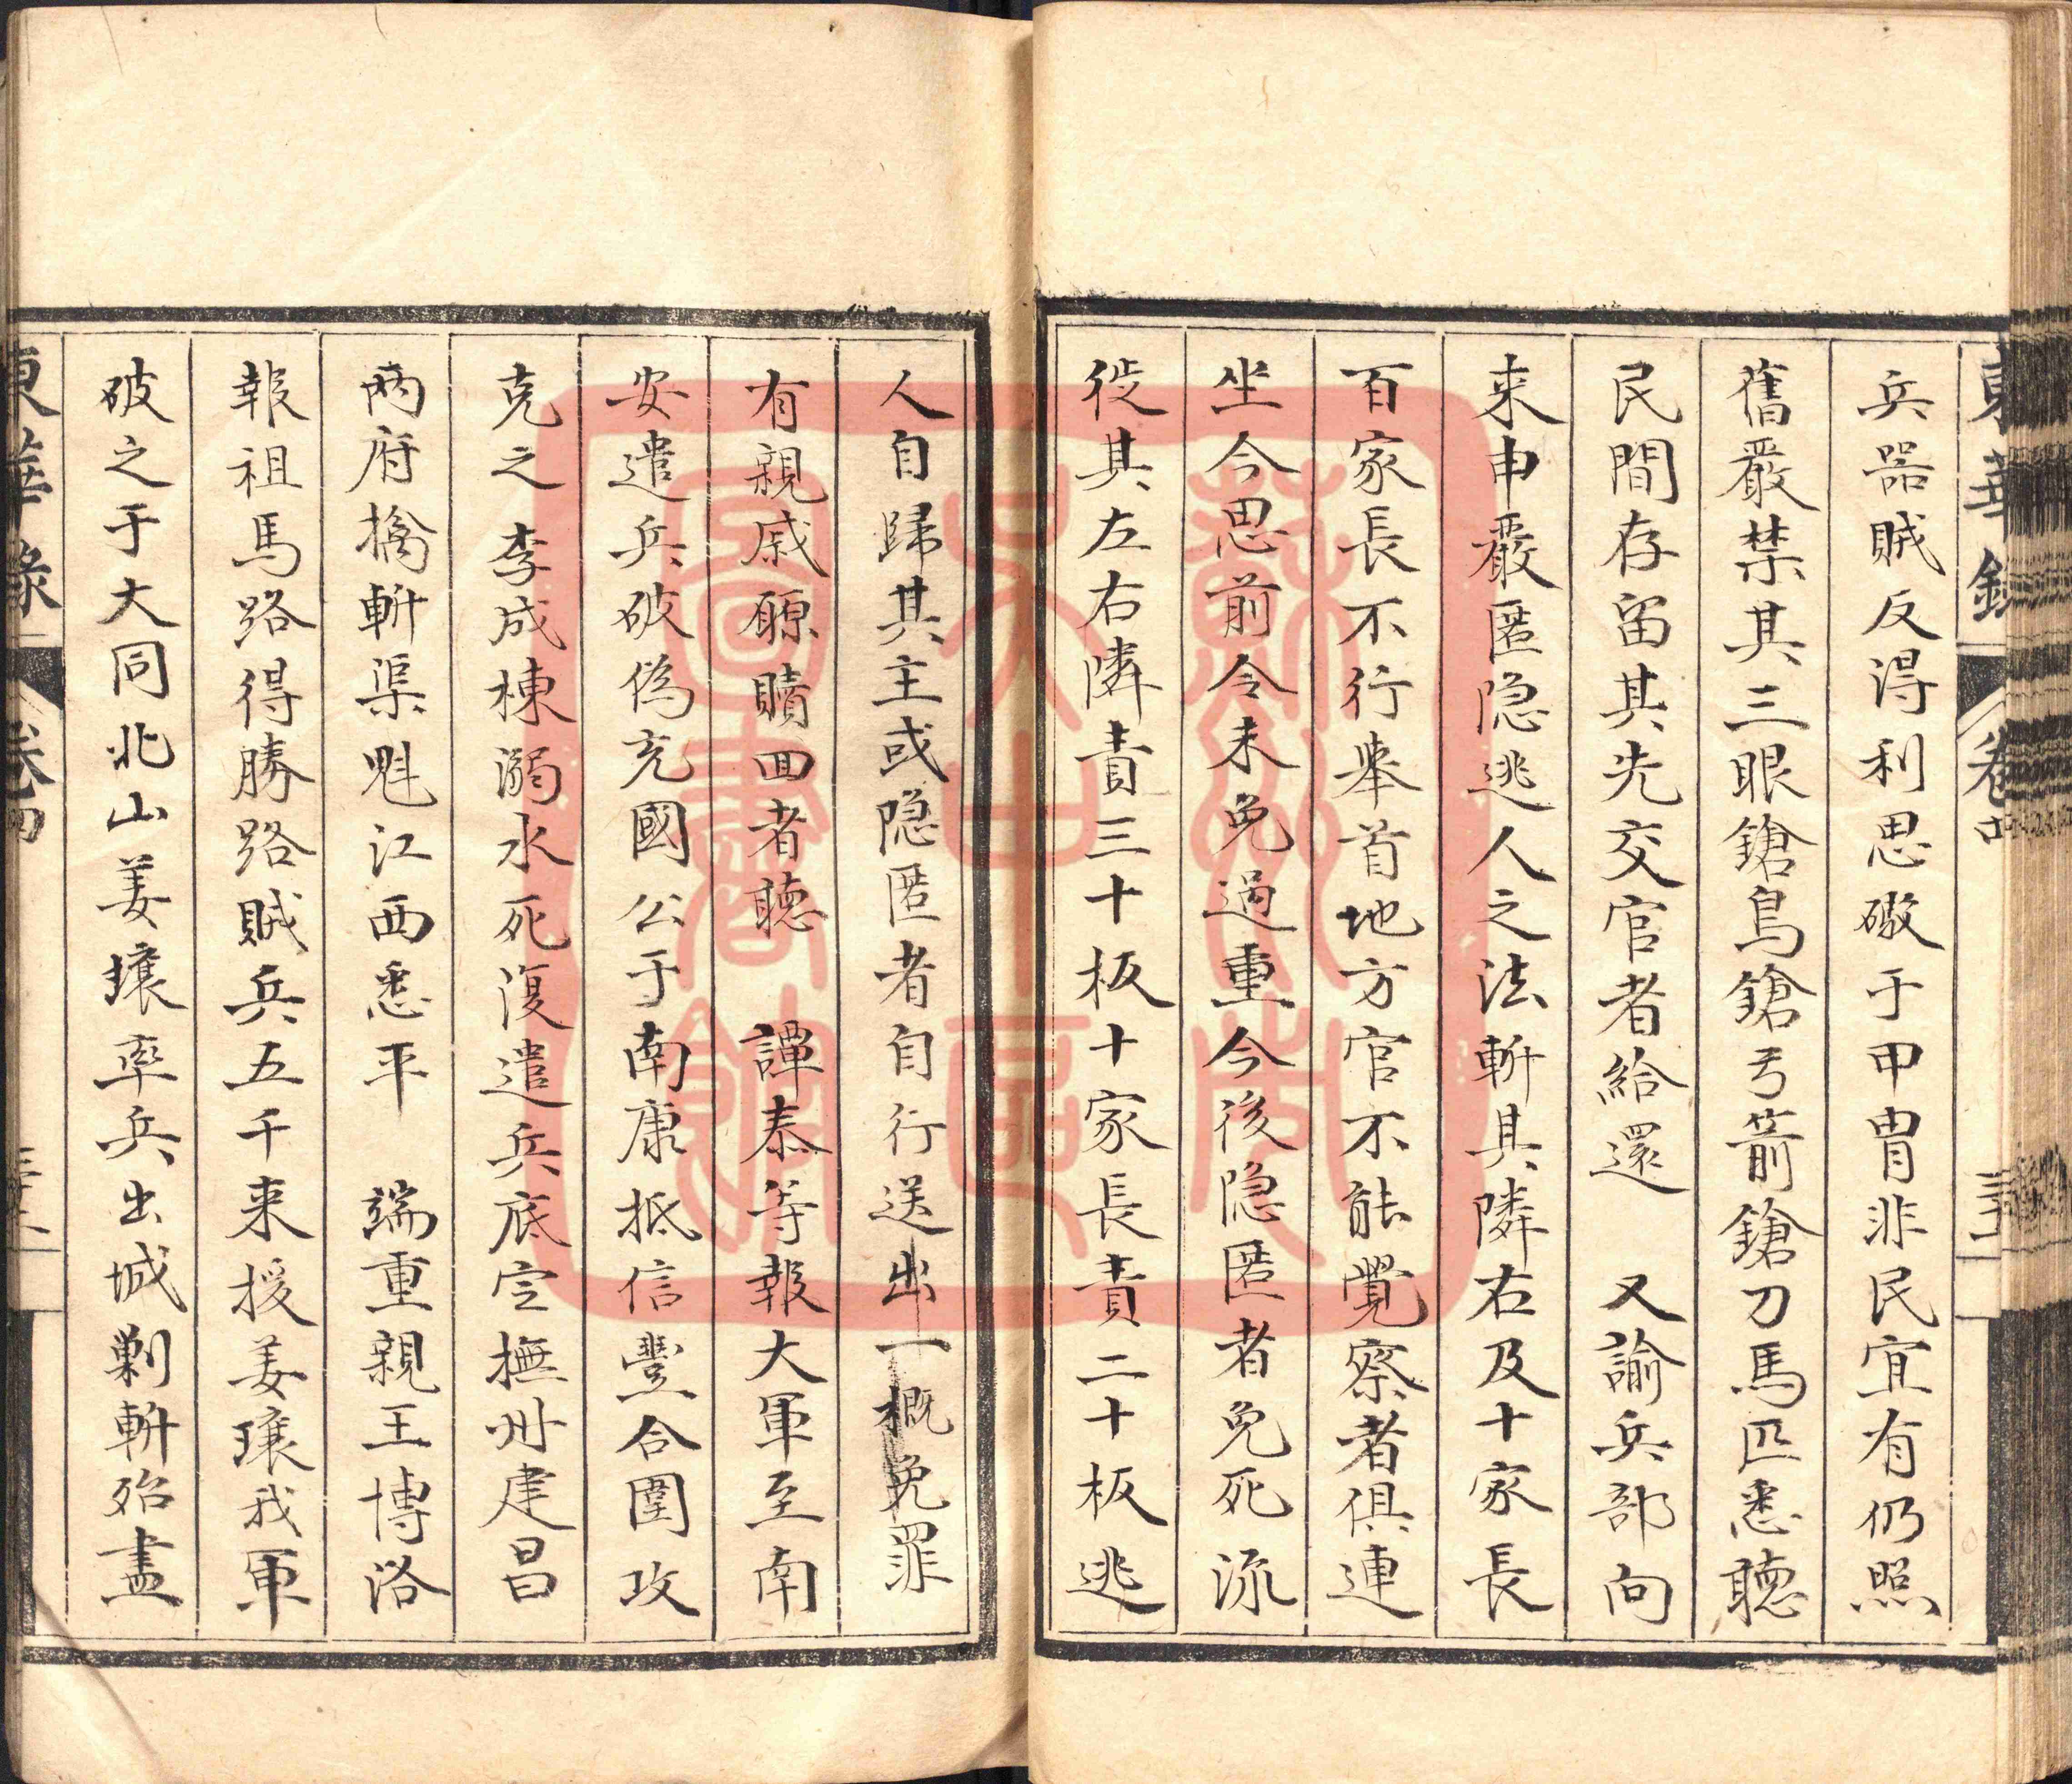 東華錄 卷四
兵器賊反得利思礮于甲冑非民宜有仍照
舊嚴禁其三眼鎗鳥鎗弓箭鎗刀馬匹悉聽
民間存留其先交官者給還　又諭兵部向
来申嚴匿隐逃人之法斬其隣右及十家長
百家長不行舉首地方官不能覺察者俱連
坐今思前令未免過重今後隐匿者免死流
徙其左右隣責三十板十家長責二十板逃
人自歸其主或隐匿者自行送出一概免罪
有親戚願贖回者聽　譚泰等報大軍至南
安遣兵破偽充國公于南康抵信豐合圍攻
克之李成棟溺水死復遣兵底定撫州建昌
兩府擒斬渠魁江西悉平　端重親王博洛
報祖馬路得勝路賊兵五千来援姜瓖我軍
破之于大同北山姜瓖率兵出城剿斬殆盡
東華錄 卷四
蘇州大學圖書館藏